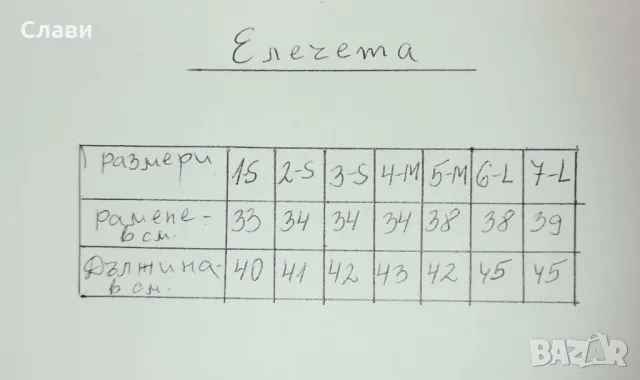 Слави
Елечета
размери 1S 2-S 3-S 4-M 5-M 6-L 7-L
рамене- 33 34 34 34 38 38 39
в см.
Дължина- 40 41 42 43 42 45 45
в см.
BAZAR